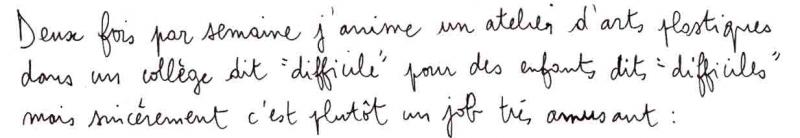 Deux fois par semaine j'anime un atelier d'arts plastiques
dans un collège dit "difficile" pour des enfants dits "difficiles"
mais sincèrement c'est plutôt un job très amusant :